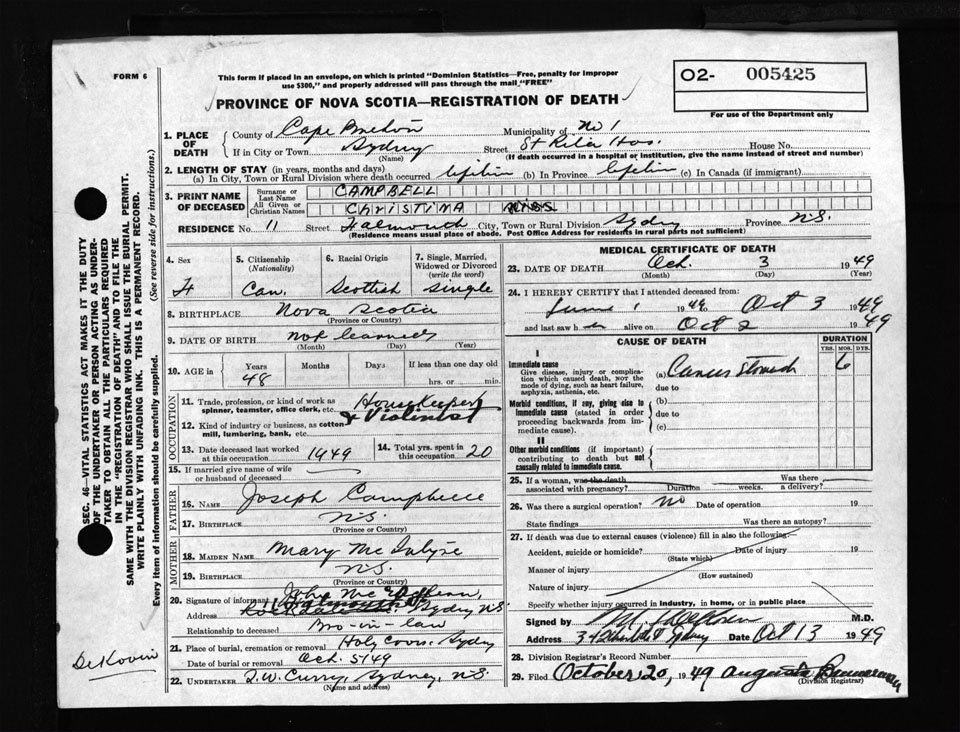 FORM 6
This form if placed in an envelope, on which is printed "Dominion Statistics—Free, penalty for improper
use $300," and properly addressed will pass through the mail "FREE"
O2- 005425
For use of the Department only
PROVINCE OF NOVA SCOTIA—REGISTRATION OF DEATH
1. PLACE OF DEATH
County of Cape Breton Municipality of No 1
If in City or Town Sydney Street St Rita Hos. House No.
(Name) (If death occurred in a hospital or institution, give the name instead of street and number)
2. LENGTH OF STAY (in years, months and days)
(a) In City, Town or Rural Division where death occurred lifetime (b) In Province lifetime (c) In Canada (if immigrant)
3. PRINT NAME OF DECEASED
Surname or Last Name CAMPBELL
All Given or Christian Names CHRISTINA MISS
RESIDENCE No. 11 Street Falmouth City, Town or Rural Division Sydney Province N.S.
(Residence means usual place of abode. Post Office Address for residents in rural parts not sufficient)
4. Sex
F
5. Citizenship (Nationality)
Can.
6. Racial Origin
Scottish
7. Single, Married, Widowed or Divorced (write the word)
single
8. BIRTHPLACE Nova Scotia
(Province or Country)
9. DATE OF BIRTH not
(Month) (Day) (Year)
10. AGE in Years 48 Months Days If less than one day old
hrs. or min.
OCCUPATION
11. Trade, profession, or kind of work as spinner, teamster, office clerk, etc. Housekeeper
& Violinist
12. Kind of industry or business, as cotton mill, lumbering, bank, etc.
13. Date deceased last worked at this occupation 1949
14. Total yrs. spent in this occupation 20
15. If married give name of wife or husband of deceased
FATHER
16. NAME Joseph Campbell
17. BIRTHPLACE N.S.
(Province or Country)
MOTHER
18. MAIDEN NAME Mary Mc
19. BIRTHPLACE N.S.
(Province or Country)
20. Signature of informant John Mc
Address Sydney N.S.
Relationship to deceased Bro-in-law
21. Place of burial, cremation or removal Holy Cross. Sydney
Date of burial or removal Oct. 5/49
22. UNDERTAKER T.W. Curry, Sydney, N.S.
(Name and address)
MEDICAL CERTIFICATE OF DEATH
23. DATE OF DEATH Oct. 3 1949
(Month) (Day) (Year)
24. I HEREBY CERTIFY that I attended deceased from:
June 1 1949 to Oct 3 1949
and last saw h er alive on Oct 2 1949
CAUSE OF DEATH
DURATION
YRS. MOS. DYS.
I
Immediate cause
Give disease, injury or complication which caused death, NOT the mode of dying, such as heart failure, asphyxia, asthenia, etc.
(a) Cancer Stomach 6
due to
Morbid conditions, if any, giving rise to immediate cause (stated in order proceeding backwards from immediate cause).
(b)
due to
(c)
II
Other morbid conditions (if important) contributing to death but not causally related to immediate cause.
25. If a woman, was the death associated with pregnancy? Duration weeks. Was there a delivery?
26. Was there a surgical operation? no Date of operation 19
State findings Was there an autopsy?
27. If death was due to external causes (violence) fill in also the following:—
Accident, suicide or homicide? Date of injury 19
(State which)
Manner of injury
(How sustained)
Nature of injury
Specify whether injury occurred in industry, in home, or in public place
Signed by M.D.
Address Sydney Date Oct 13 1949
28. Division Registrar's Record Number
29. Filed October 20, 1949
(Division Registrar)
SEC. 46—VITAL STATISTICS ACT MAKES IT THE DUTY
OF THE UNDERTAKER OR PERSON ACTING AS UNDERTAKER
TO OBTAIN ALL THE PARTICULARS REQUIRED
IN THE "REGISTRATION OF DEATH" AND TO FILE THE
SAME WITH THE DIVISION REGISTRAR WHO SHALL ISSUE THE BURIAL PERMIT.
WRITE PLAINLY WITH UNFADING INK. THIS IS A PERMANENT RECORD.
Every item of information should be carefully supplied. (See reverse side for instructions.)